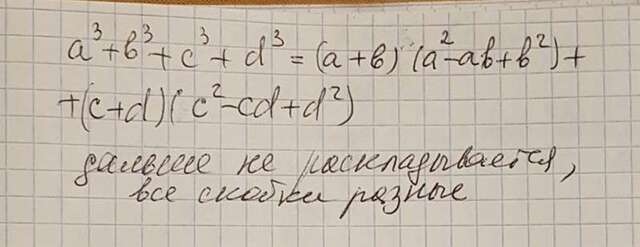 a³+в³+c³+d³=(a+в)(a²-aв+в²)+
+(c+d)(c²-cd+d²)
дальше не раскладывается,
все скобки разные